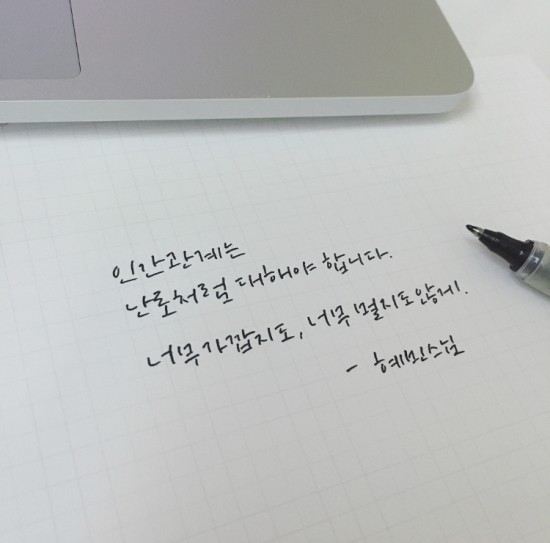 인간관계는
난로처럼 대해야 합니다.
너무 가깝지도, 너무 멀지도 않게.
- 혜민스님